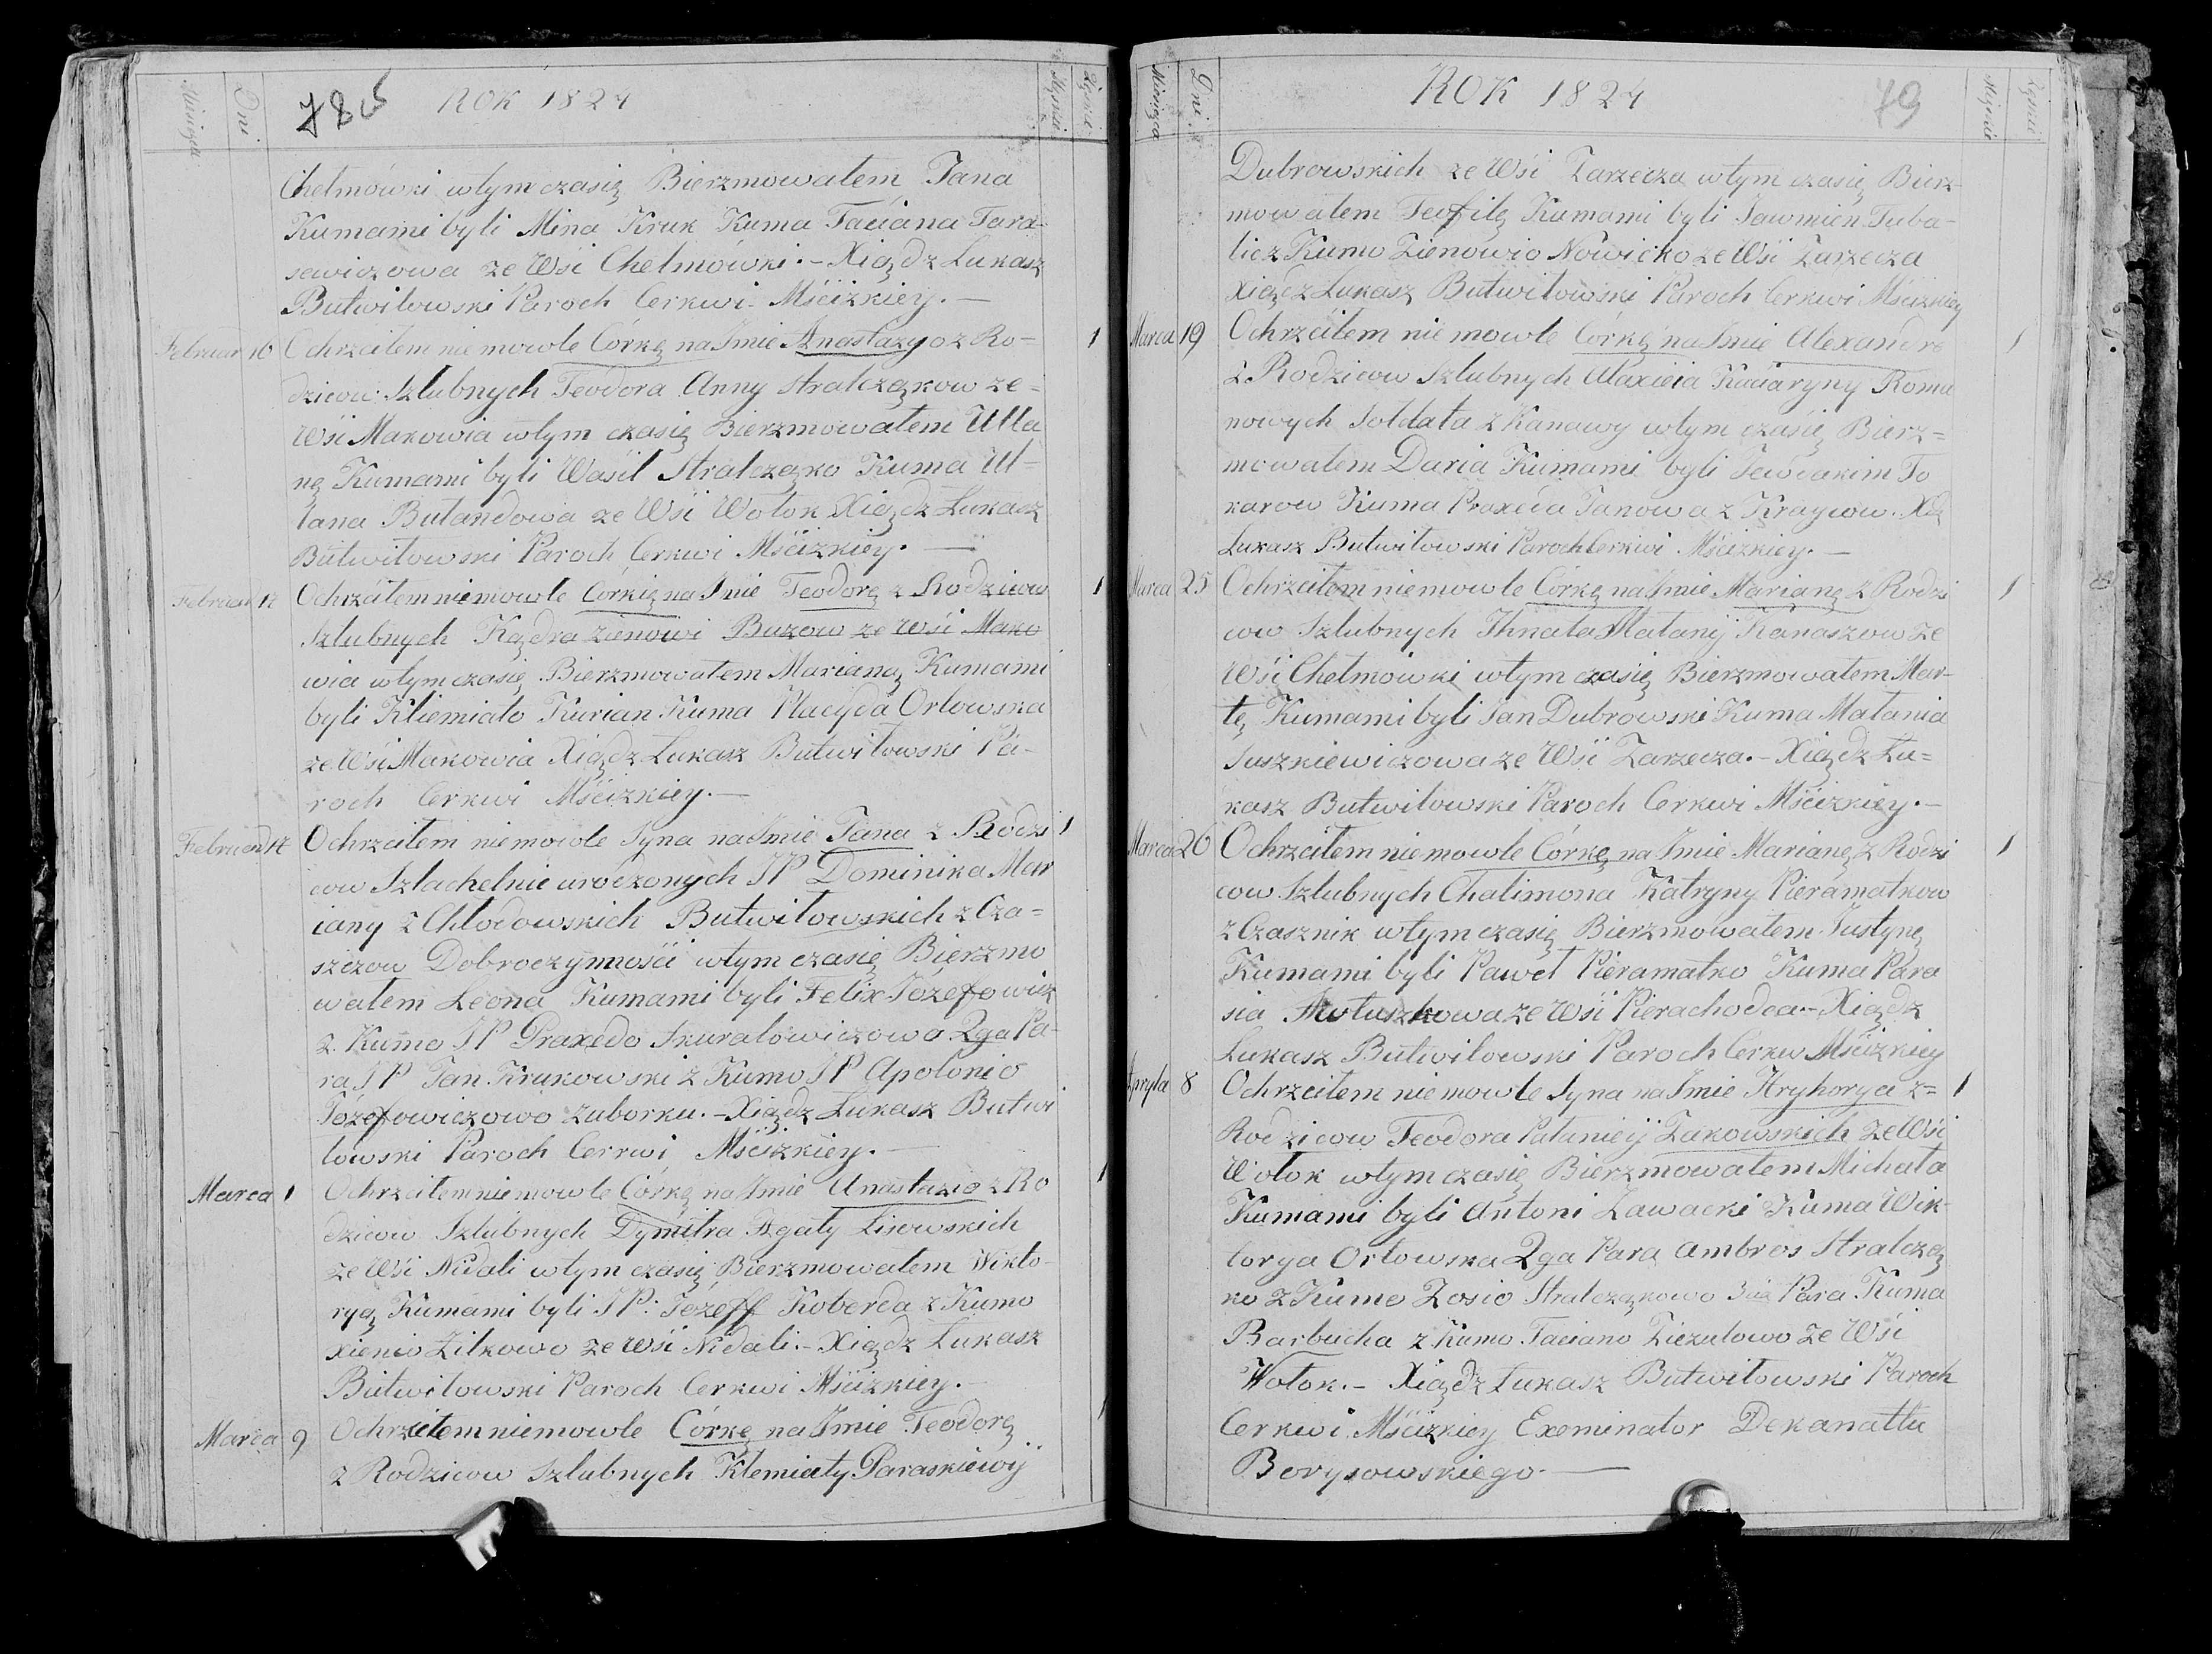 Miesięca Dni
78 ROK 1824
Męskie Żęskie
Chełmówki wtym czasię Bierzmowałem Jana
Kumami byli Mina Kruk Kuma Taciana Tara-
sewiczowa ze Wsi Chełmówki.- Xiądz Łukasz
Butwiłowski Paroch Cerkwi Mścizkiey.-
Februar 10 Ochrzciłem niemowle Córkę na Jmie Anastazyo z Ro-
dzicow Szlubnych Teodora Anny Stralcząkow ze=
Wsi Makowia wtym czasię Bierzmowałem Ulla
nę Kumami byli Wasil Stralcząko Kuma Ul-
lana Butandowa ze Wsi Wołok Xiądz Łukasz
Butwiłowski Paroch Cerkwi Mścizkiey.-
Februar 12 Ochrzciłem niemowle Córkię na Jmie Teodorę z Rodzicow
Szlubnych Kądra Zienowi Buzow ze Wsi Mako
wia wtym czasię Bierzmowałem Marianą Kumami
byli Kliemiato Kurian Kuma Placyda Orłowska
ze Wsi Makowia Xiądz Łukasz Butwiłowski Pa-
roch Cerkwi Mścizkiey.-
Februar 14 Ochrzciłem niemowle Syna na Jmie Jana z Rodzi 1
cow Szlachetnie urodzonych JP Dominika Mar
iany z Chłodowskich Butwiłowskich z Cza=
szczow Dobroczynności wtym czasię Bierzmo
wałem Leona Kumami byli Felix Józefowicz
z Kumo JP Praxedo Skuratowiczowo 2ga Pa-
ra JP Jan Krukowski z Kumo JP Apolonio
Józefowiczowo Zuborku.- Xiądz Łukasz Butwi
łowski Paroch Cerkwi Mścizkiey.-
Marca 1 Ochrzciłem niemowle Córkę na Jmie Anastazio z Ro 1
dzicow Szlubnych Dymitra Agaty Lisowskich
ze Wsi Nidali wtym czasię Bierzmowałem Wikto-
ryą Kumami byli JP: Józeff Koberda z Kumo
Xienio Zitkowo ze Wsi Nidali.- Xiądz Łukasz
Butwiłowski Paroch Cerkwi Mścizkiey.-
Marca 9 Ochrzciłem niemowle Córkę na Jmie Teodorę 1
z Rodzicow Szlubnych Klemiaty Paraskiewij
Miesięca Dni
ROK 1824 79
Męskie Żęskie
Dubrowskich ze Wsi Zarzecza wtym czasię Bierz-
mowałem Teofilę Kumami byli Jawmien Tuba-
licz Kumo Zienowio Nowicko ze Wsi Zarzecza
Xiądz Łukasz Butwiłowski Paroch Cerkwi Mścizkiey
Marca 19 Ochrzciłem niemowle Córkę na Jmie Alexandro 1
z Rodzicow Szlubnych Alaxieia Kaciaryny Roma
nowych Sołdata z Kanawy wtym czasię Bierz=
mowałem Daria Kumami byli Jewdakim To
karow Kuma Praxeda Janowa z Kraycow. Xdz
Łukasz Butwiłowski Paroch Cerkwi Mścizkiey.-
Marca 25 Ochrzciłem niemowle Córkę na Jmie Marianę z Rodzi 1
cow Szlubnych Ihnata Matanij Kanaszow ze
Wsi Chełmowki wtym czasię Bierzmowałem Mar-
tę Kumami byli Jan Dubrowski Kuma Matania
Suszkiewiczowa ze Wsi Zarzecza.- Xiądz Łu=
kasz Butwiłowski Paroch Cerkwi Mścizkiey.-
Marca 26 Ochrzciłem niemowle Córkę na Jmie Marianę z Rodzi 1
cow Szlubnych Chalimona Katryny Pieramatkow
z Czasznik wtym czasię Bierzmowałem Justynę
Kumami byli Paweł Pieramatko Kuma Para
sia Motuszkowa ze Wsi Pierachodca.- Xiądz
Łukasz Butwiłowski Paroch Cerkw Mścizkiey
Apryla 8 Ochrzciłem niemowle Syna na Jmie Hryhorya z= 1
Rodzicow Teodora Pałanieij Zakowskich ze Wsi
Wołok wtym czasię Bierzmowałem Michała
Kumami byli Antoni Zawacki Kuma Wik-
torya Orłowska 2ga Para Ambros Stralczą
ko z Kumo Zosio Stralcząkowo 3cia Para Kuma
Barbucha z Kumo Taciano Ziezulowo ze Wsi
Wołok.- Xiądz Łukasz Butwiłowski Paroch
Cerkwi Mścizkiey Exeminator Dekanattu
Borysowskiego.-